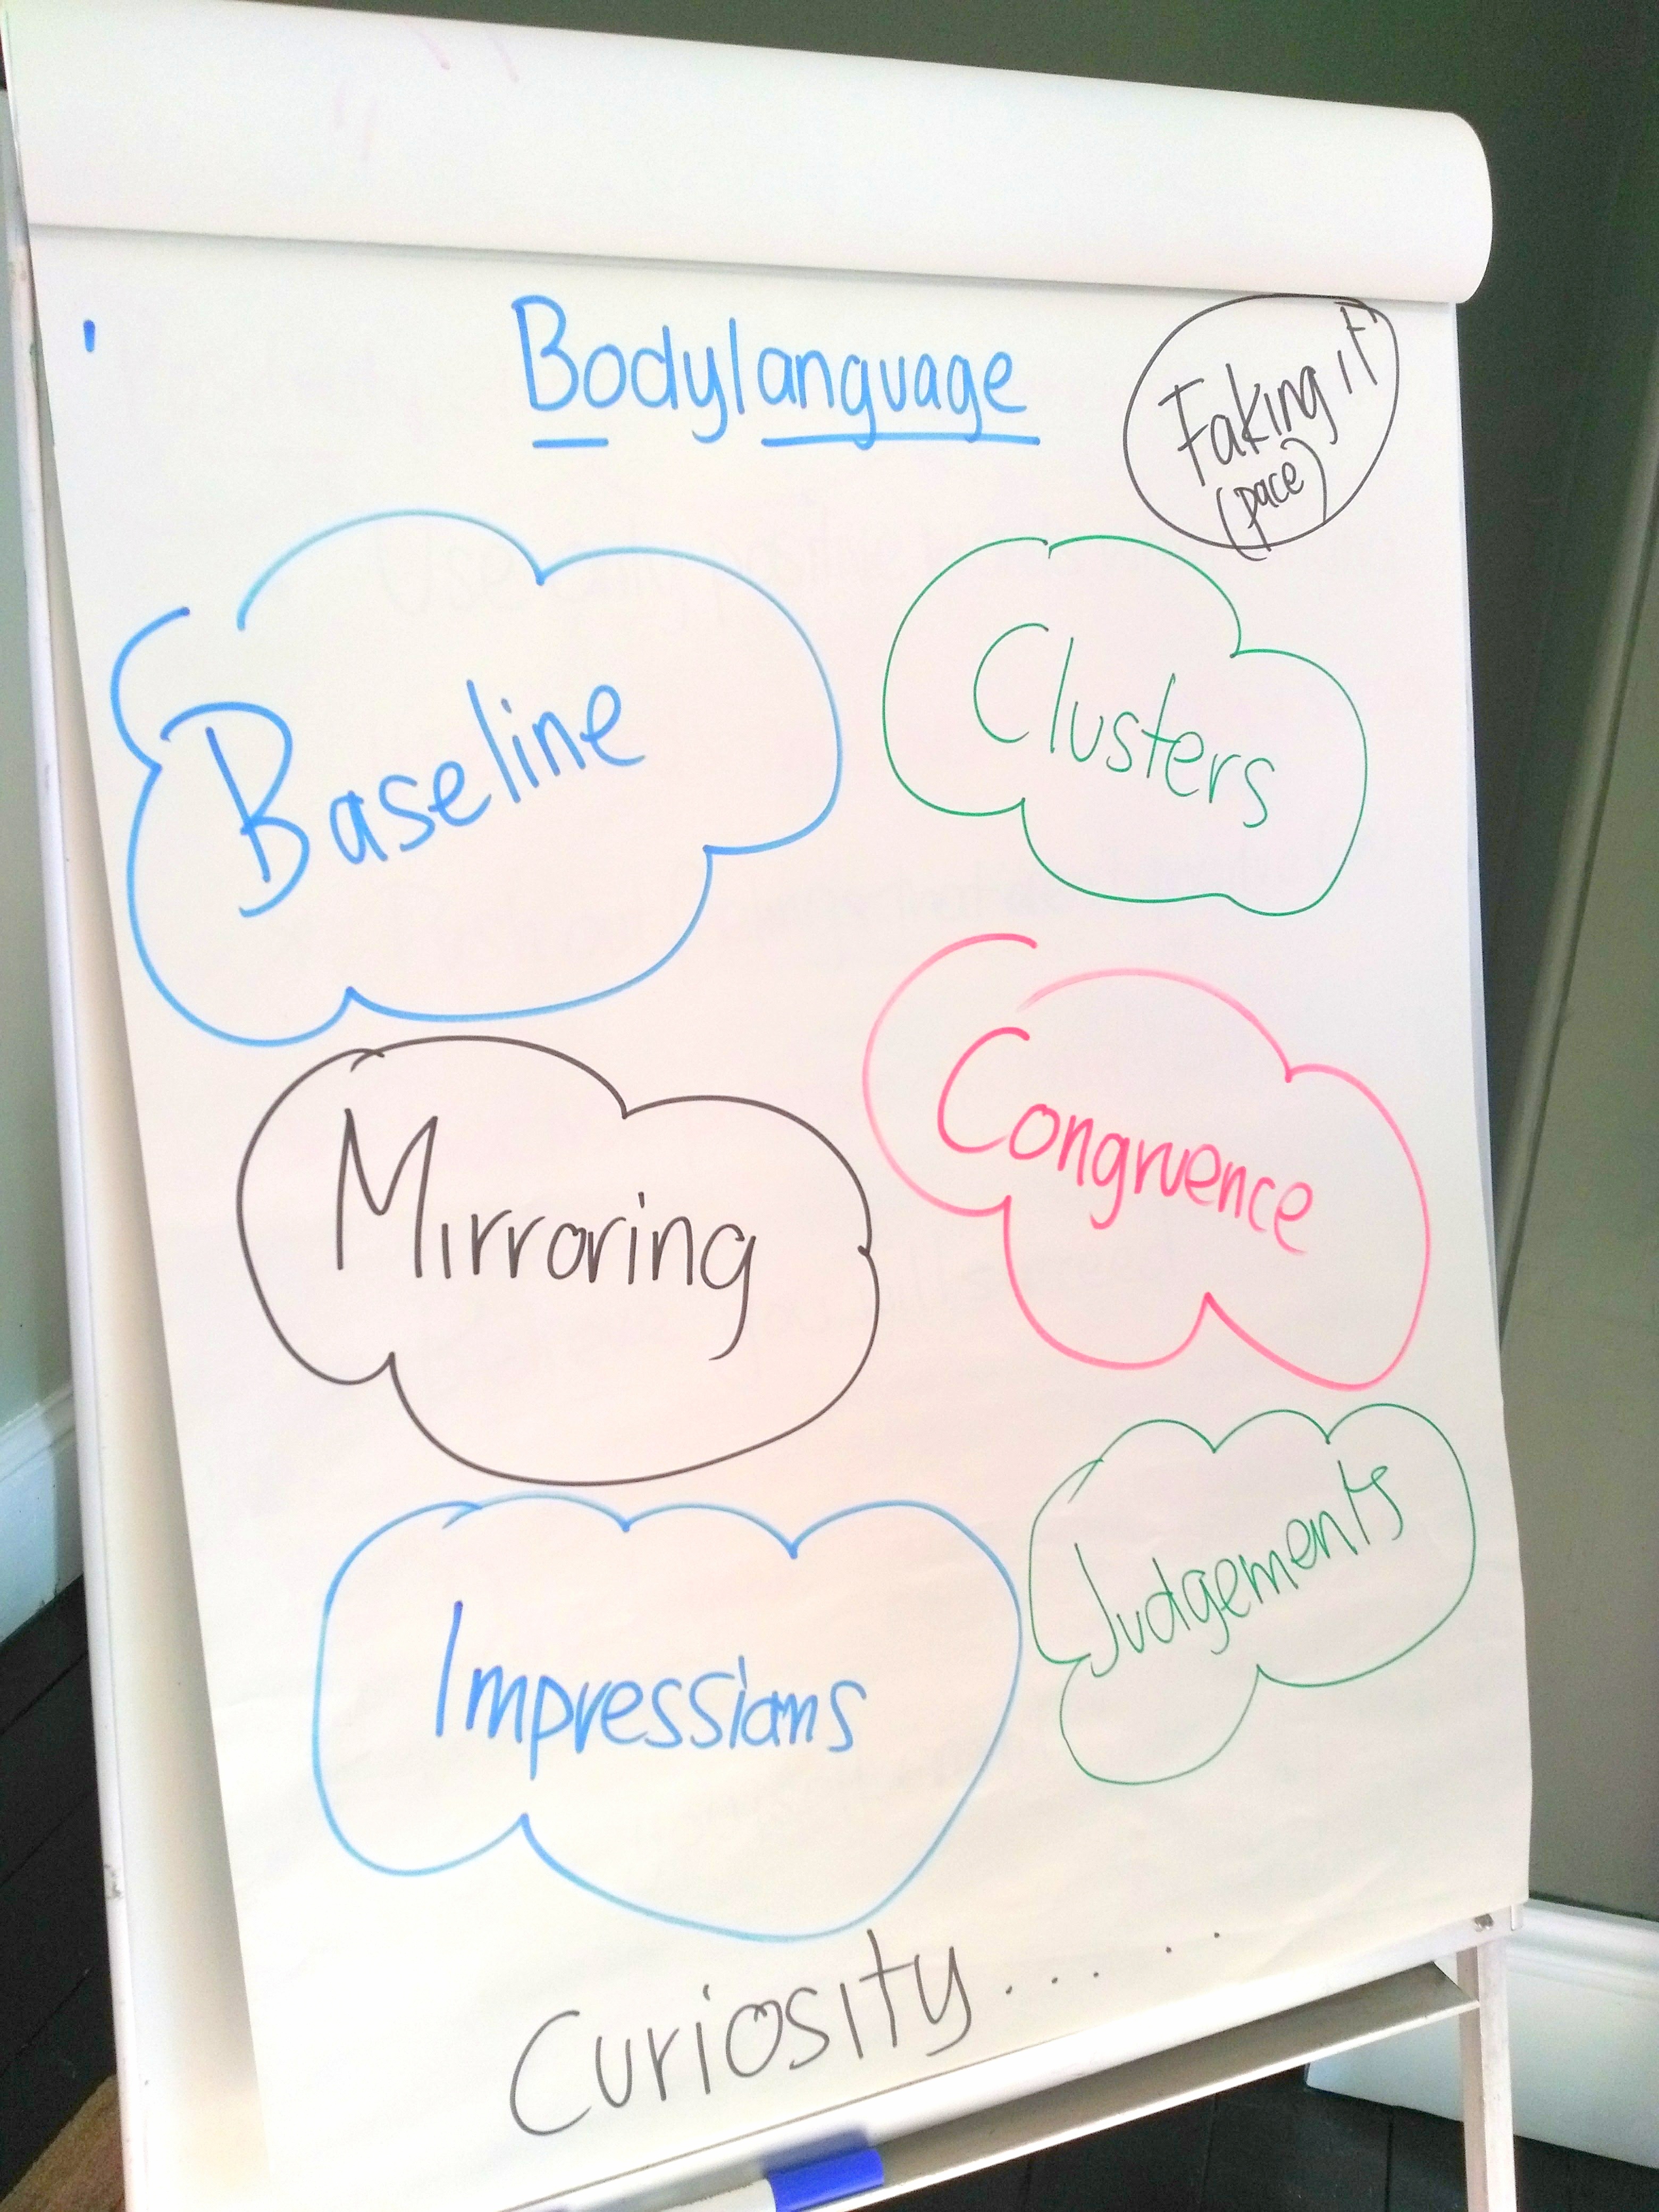 Bodylanguage
Faking it
(pace)
Baseline
Clusters
Mirroring
Congruence
Impressions
Judgements
Curiosity.... ..